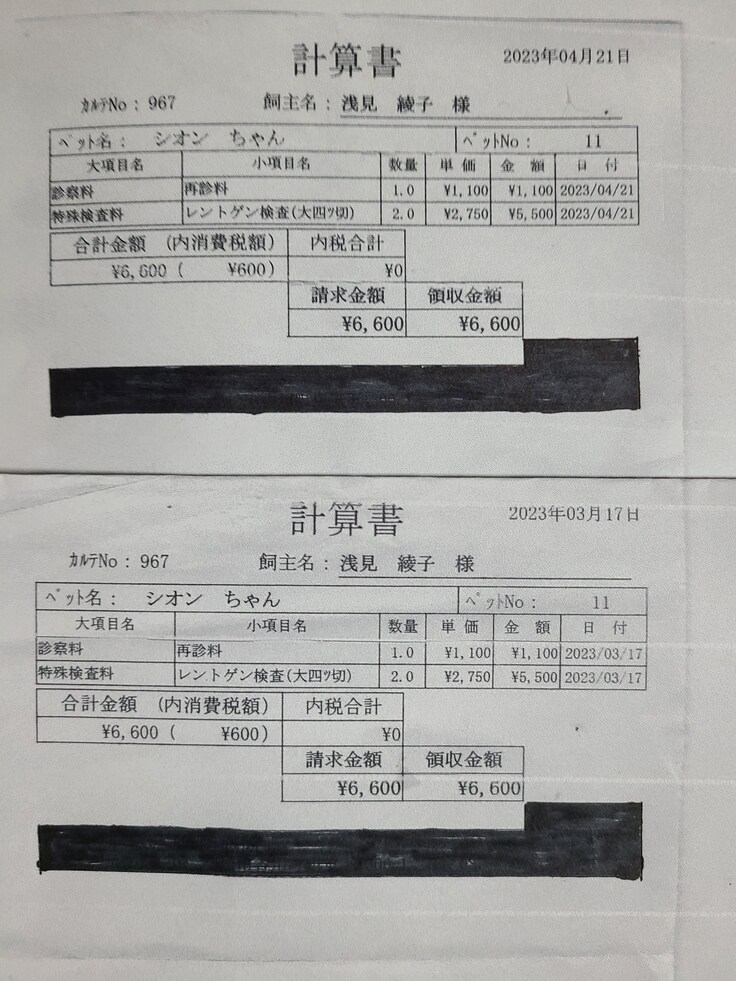 計算書
2023年04月21日
ｶﾙﾃNo：967 飼主名：浅見 綾子 様
ﾍﾟｯﾄ名： シオン ちゃん ﾍﾟｯﾄNo： 11
大項目名 小項目名 数量 単価 金額 日付
診察料 再診料 1.0 ¥1,100 ¥1,100 2023/04/21
特殊検査料 レントゲン検査(大四ﾂ切) 2.0 ¥2,750 ¥5,500 2023/04/21
合計金額 (内消費税額) 内税合計
¥6,600 ( ¥600) ¥0
請求金額 領収金額
¥6,600 ¥6,600
計算書
2023年03月17日
ｶﾙﾃNo：967 飼主名：浅見 綾子 様
ﾍﾟｯﾄ名： シオン ちゃん ﾍﾟｯﾄNo： 11
大項目名 小項目名 数量 単価 金額 日付
診察料 再診料 1.0 ¥1,100 ¥1,100 2023/03/17
特殊検査料 レントゲン検査(大四ﾂ切) 2.0 ¥2,750 ¥5,500 2023/03/17
合計金額 (内消費税額) 内税合計
¥6,600 ( ¥600) ¥0
請求金額 領収金額
¥6,600 ¥6,600